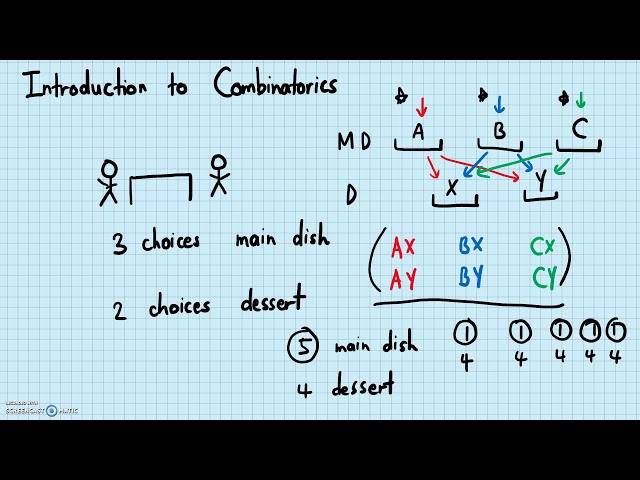 Introduction to Combinatorics
MD A B C
D X Y
3 choices main dish
2 choices dessert
AX BX CX
AY BY CY
5 main dish 1 1 1 1 1
4 4 4 4 4
4 dessert
RECORDED WITH
SCREENCAST MATIC